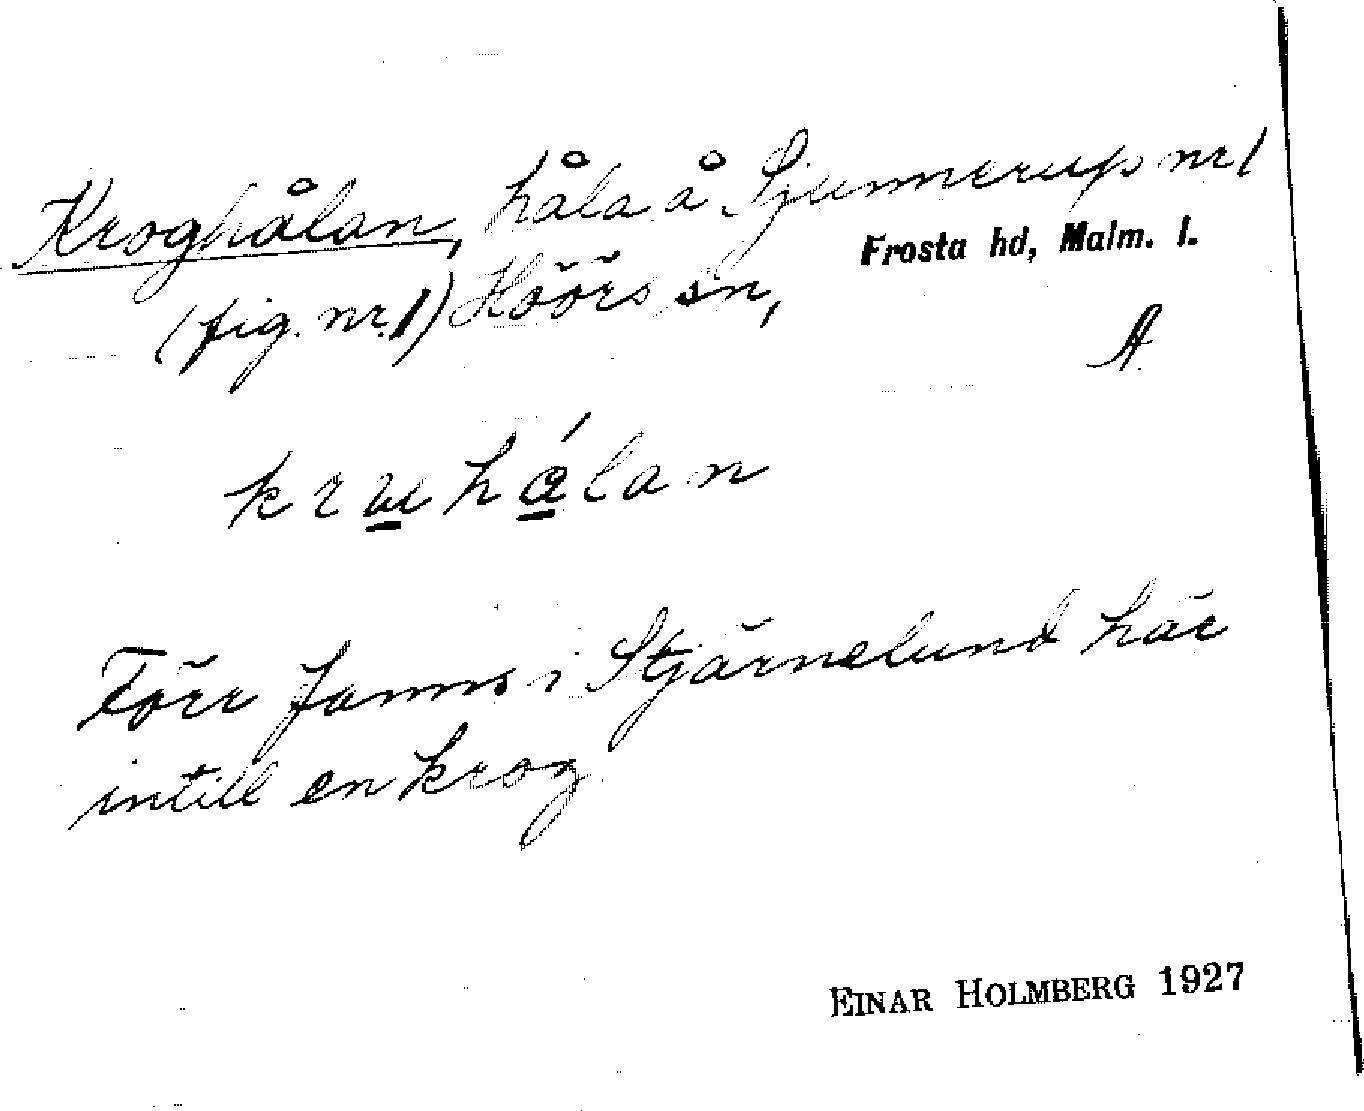 Kroghålan, håla å Sjunnerup nr 1
Frosta hd, Malm. l.
(fig. nr. 1) Höörs sn,
A.
Förr fanns i Stjärnelund här
intill en krog
EINAR HOLMBERG 1927